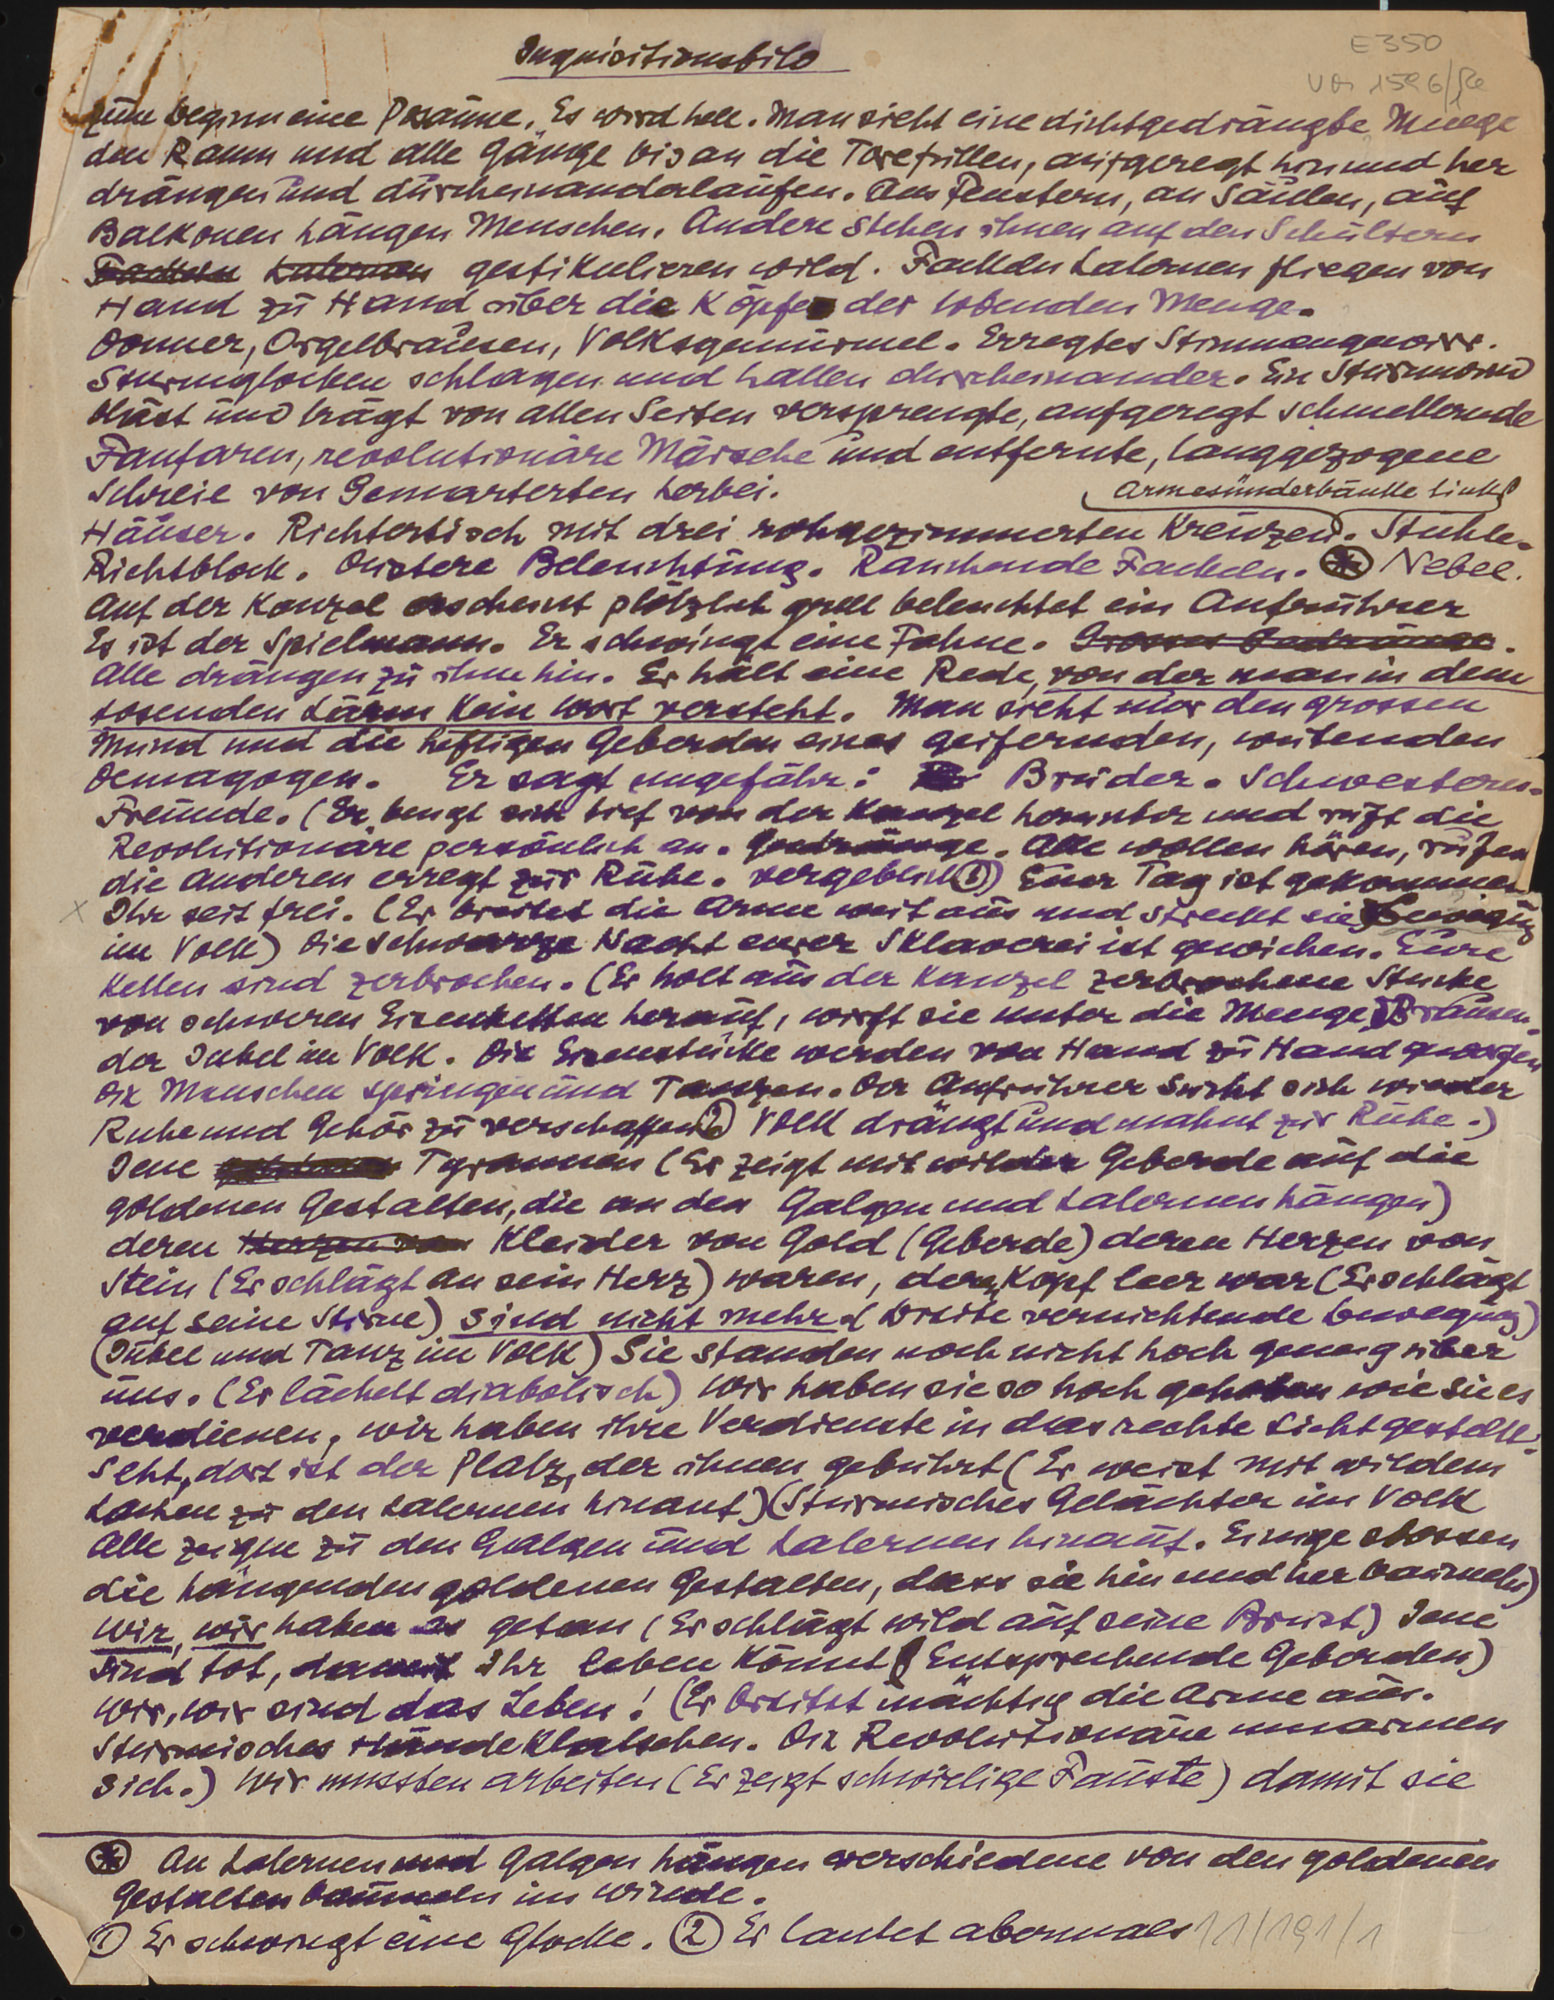 Inquisitionsbild
E 350
zum beginn eine Posaune. Es wird hell. Man sieht eine dichtgedrängte Menge
den Raum und alle Gänge bis an die Tore füllen, aufgeregt hin und her
drängen und durcheinanderlaufen. Aus Fenstern, an Säulen, auf
Balkonen hängen Menschen. Andere stehen ihnen auf den Schultern
Fackeln Laternen gestikulieren wild. Fackeln Laternen fliegen von
Hand zu Hand über die Köpfe der tobenden Menge.
Donner, Orgelbrausen, Volksgemurmel. Erregtes Stimmengewirr.
Sturmglocken schlagen und hallen durcheinander. Ein Sturmwind
bläst und trägt von allen Seiten versprengte, aufgeregt schmetternde
Fanfaren, revolutionäre Märsche und entfernte, langgezogene
Schreie von Gemarterten herbei.
Armesünderbänke links
Häuser. Richtertisch mit drei rohgezimmerten Kreuzen. Stühle.
Richtblock. Düstere Beleuchtung. Rauchende Fackeln. * Nebel.
Auf der Kanzel erscheint plötzlich grell beleuchtet ein Aufrührer
Es ist der Spielmann. Er schwingt eine Fahne. Grosses Gedränge.
Alle drängen zu ihm hin. Er hält eine Rede, von der man in dem
tosenden Lärm kein Wort versteht. Man sieht nur den grossen
Mund und die heftigen Geberden eines geifernden, wütenden
Demagogen. Er sagt ungefähr: Brüder. Schwestern.
Freunde. (Er beugt sich tief von der Kanzel herunter und ruft die
Revolutionäre persönlich an. Gedränge. Alle wollen hören, rufen
die Anderen erregt zur Ruhe. Vergeblich ①) Euer Tag ist gekommen
x Ihr seit frei. (Er breitet die Arme weit aus und streckt sie Bewegung
im Volk) Die schwarze Nacht eurer Sklaverei ist gewichen. Eure
Ketten sind zerbrochen. (Er holt aus der Kanzel zerbrochene Stücke
von schweren Eisenketten herauf, wirft sie unter die Menge, Brausen-
der Jubel im Volk. Die Eisenstücke werden von Hand zu Hand geworfen
Die Menschen springen und Tanzen. Der Aufrührer sucht sich wieder
Ruhe und Gehör zu verschaffen ② Volk drängt und mahnt zur Ruhe.)
Jene Tyrannen (Er zeigt mit wilder Geberde auf die
goldenen Gestalten, die an den Galgen und Laternen hängen)
deren Herzen von Kleider von Gold (Geberde) deren Herzen von
Stein (Er schlägt an sein Herz) waren, deren Kopf leer war (Er schlägt
auf seine Stirne) sind nicht mehr. (Breite vernichtende bewegung)
(Jubel und Tanz im Volk) Sie standen noch nicht hoch genug über
uns. (Er lächelt diabolisch) Wir haben sie so hoch gehoben wie sie es
verdienen, wir haben ihre Verdienste in das rechte Licht gestellt.
Seht, dort ist der Platz, der ihnen gebührt (Er weist mit wildem
Lachen zu den Laternen hinauf) (Stürmisches Gelächter im Volk
Alle zeigen zu den Galgen und Laternen hinauf. Einige stossen
die hängenden goldenen Gestalten, dass sie hin und her baumeln)
Wir, wir haben es getan (Er schlägt wild auf seine Brust) Jene
sind tot, damit Ihr leben könnt (Entsprechende Geberden)
Wir, wir sind das Leben! (Er breitet mächtig die Arme aus.
Stürmisches Händeklatschen. Die Revolutionäre umarmen
sich.) Wir mussten arbeiten (Er zeigt schwielige Fäuste) damit sie
* An Laternen und Galgen hängen verschiedene von den goldenen
Gestalten baumeln im Winde.
① Er schwingt eine Glocke. ② Er läutet abermals
11/191/1